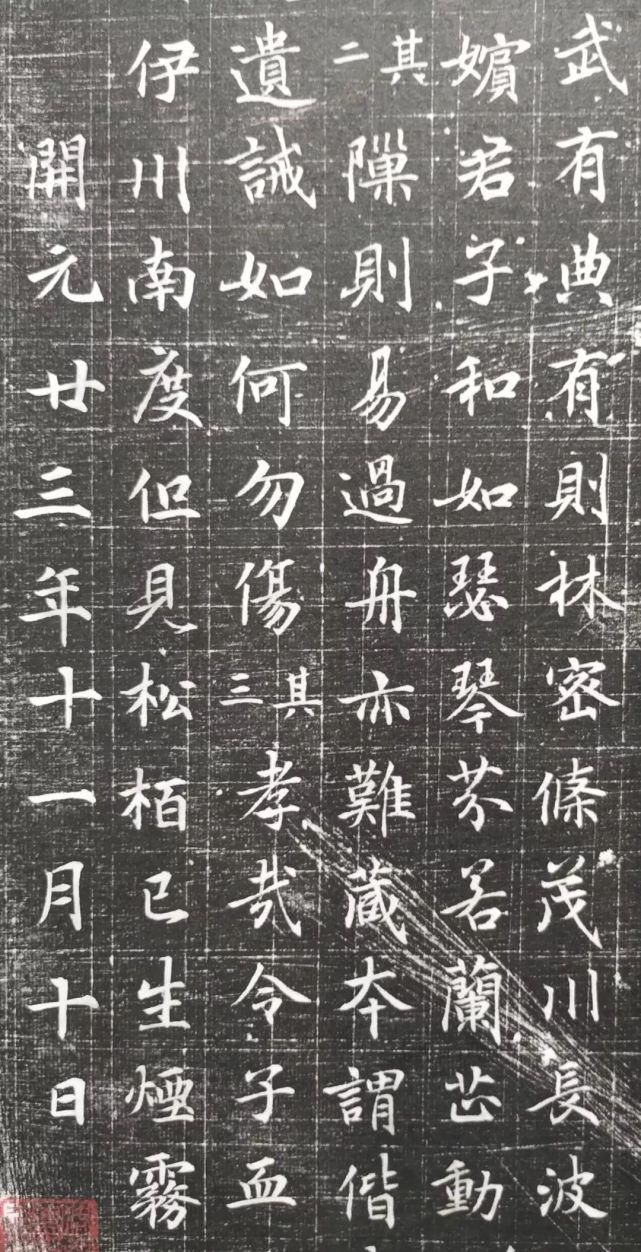 武有典有則林密條茂川長波
嬪君子和如瑟琴芬若蘭芷動
其二隟則易過舟亦難藏夲謂偕
遺誡如何勿傷其三孝哉令子血
伊川南度但見松栢已生煙霧
開元廿三年十一月十日